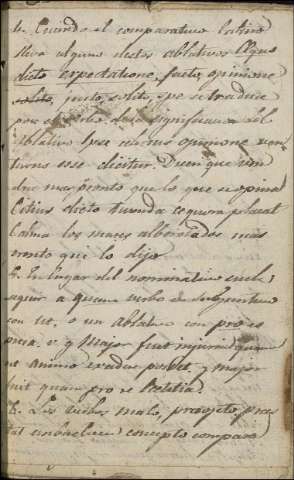 4. Cuando el comparativo latino
lleva alguno destos ablativos Æquo
dicto expectatione, facto, opinione
solito, justo, solito, que se traduce
por el verbo de la significacion del
ablativo
opinione ven
turus esse dicitur. Dicen que ven
drà mas pronto que lo que se opina
Citius dicto tumida æquora placat
Calma los mares alborotados mas
pronto que lo dijo
5. En lugar del nominativo suele
seguir a quam verbo de subjuntivo
con ut, o un ablativo con pro es
presa. v. g. Major fuit injuria quam
ut animo evadere posset, y major
fuit quam pro re lætitia.
6. Los verbos malo, præopto, præs
tat concepto compara